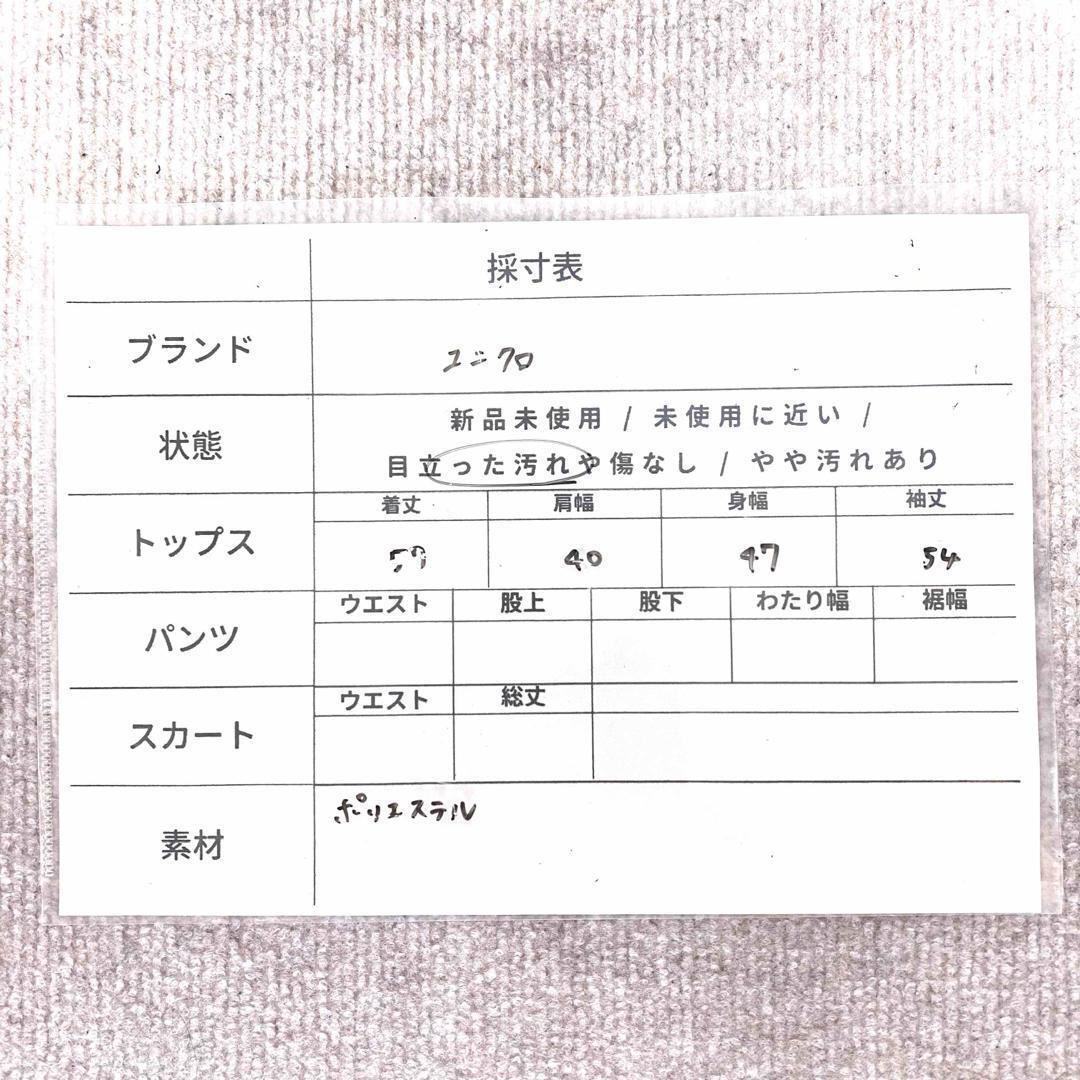 採寸表
ブランド
ユニクロ
状態
新品未使用 / 未使用に近い /
目立った汚れや傷なし / やや汚れあり
トップス
着丈 肩幅 身幅 袖丈
40 47 54
パンツ
ウエスト 股上 股下 わたり幅 裾幅
スカート
ウエスト 総丈
素材
ポリエステル